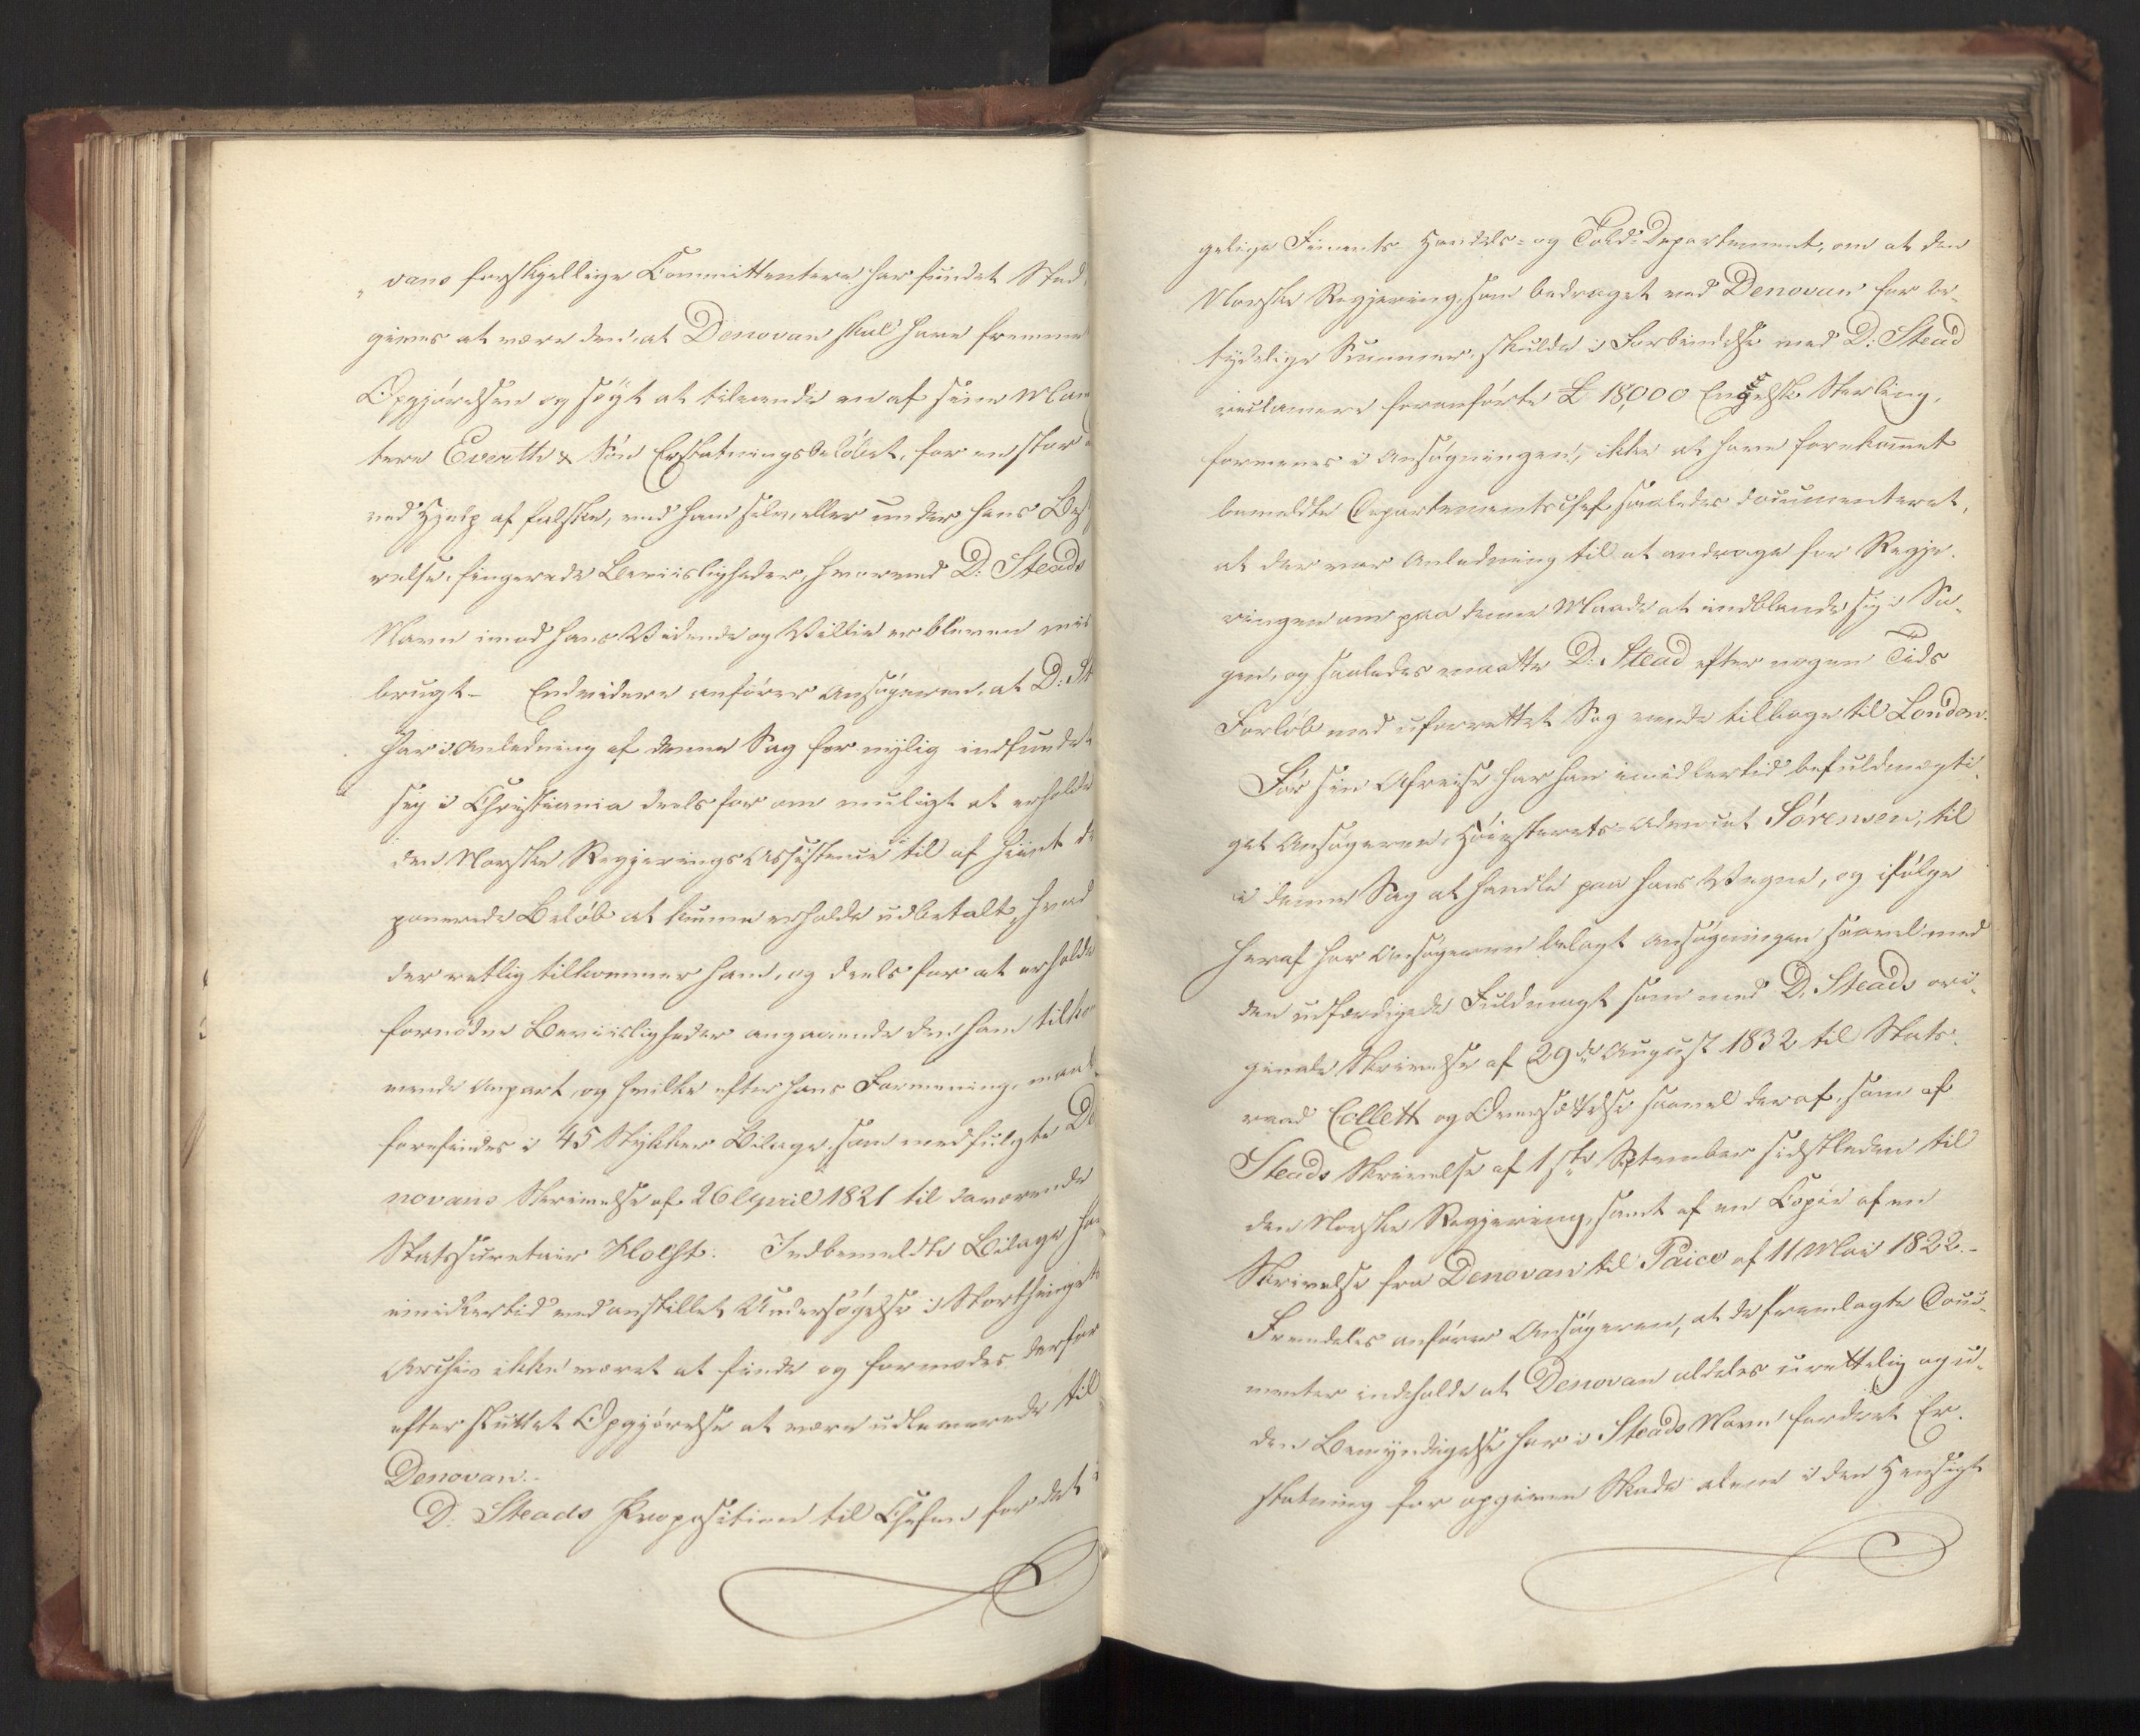 „vans forskjellige Committentere har fundet Sted,
gives at være den, at Denovan skal have fremme
Opgjørelsen og søgt at tilvende en af sine Man
tere Everth & Søn Erstatningsbeløbet, for en stor
ved Hjelp af falske, ved ham selv, eller under hans Best
relse fingerede Beviisligheder, hvorved D: Steads
Navn imod hans Vidende og Villie er bleven mis
brugt – Endvidere anfører Ansøgeren, at D: St
har i Anledning af denne Sag for nylig indfundet
sig i Christiania deels for om muligt at erholde
den Norske Regjerings Assistence til af hiint de
ponerede Beløb at kunne erholde udbetalt, hvad
der retlig tilkommer ham, og deels for at erholde
fornødne Beviisligheder angaaende den ham tilkom
mende Anpart, og hvilke efter hans Formening, maat
forefindes i 45 Stykker Bilage, som medfulgte De
novans Skrivelse af 26 April 1821 til daværende
Statssecretair Holst. Indbemeldte Bilage har
imidlertid ved anstillet Undersøgelse i Storthingets
Archiv ikke været at finde og formodes derfor
efter sluttet Opgjørelse at være udleverede til
Denovan. –
D. Steads Proposition til Chefen for det i
gelige Finants- Handels- og Told-Departement, om at den
Norske Regjering, som bedraget ved Denovan for be-
tydelige Summer, skulde i Forbindelse med D: Stead
reclamere foranførte £ 18,000 Engelsk Sterling,
formenes i Ansøgningen, ikke at have forekommet
bemeldte Departementschef saaledes documenteret,
at der var Anledning til at andrage for Regje-
ringen om paa denne Maade at indblande sig i Sa-
gen, og saaledes maatte D: Stead efter nogen Tids
Forløb med uforrettet Sag vende tilbage til London.
Før sin Afreise har han imidlertid befuldmægti-
get Ansøgeren, Høiesterets-Advocat Sørensen, til
i denne Sag at handle paa hans Vegne, og ifølge
heraf har Ansøgeren belagt Ansøgningen saavel med
den udfærdigede Fuldmagt som med D. Steads ori-
ginale Skrivelse af 29de August 1832 til Stats-
raad Collett og Oversættelse saavel deraf, som af
Steads Skrivelse af 1ste September sidstleden til
den Norske Regjering, samt af en Copie af en
Skrivelse fra Denovan til Paice af 11 Mai 1822. –
Fremdeles anfører Ansøgeren, at de fremlagte Docu-
menter indeholde at Denovan aldeles urettelig og u-
den Bemyndigelse har i Steads Navn fordret Er-
statning for opgiven Skade alene i den Hensigt